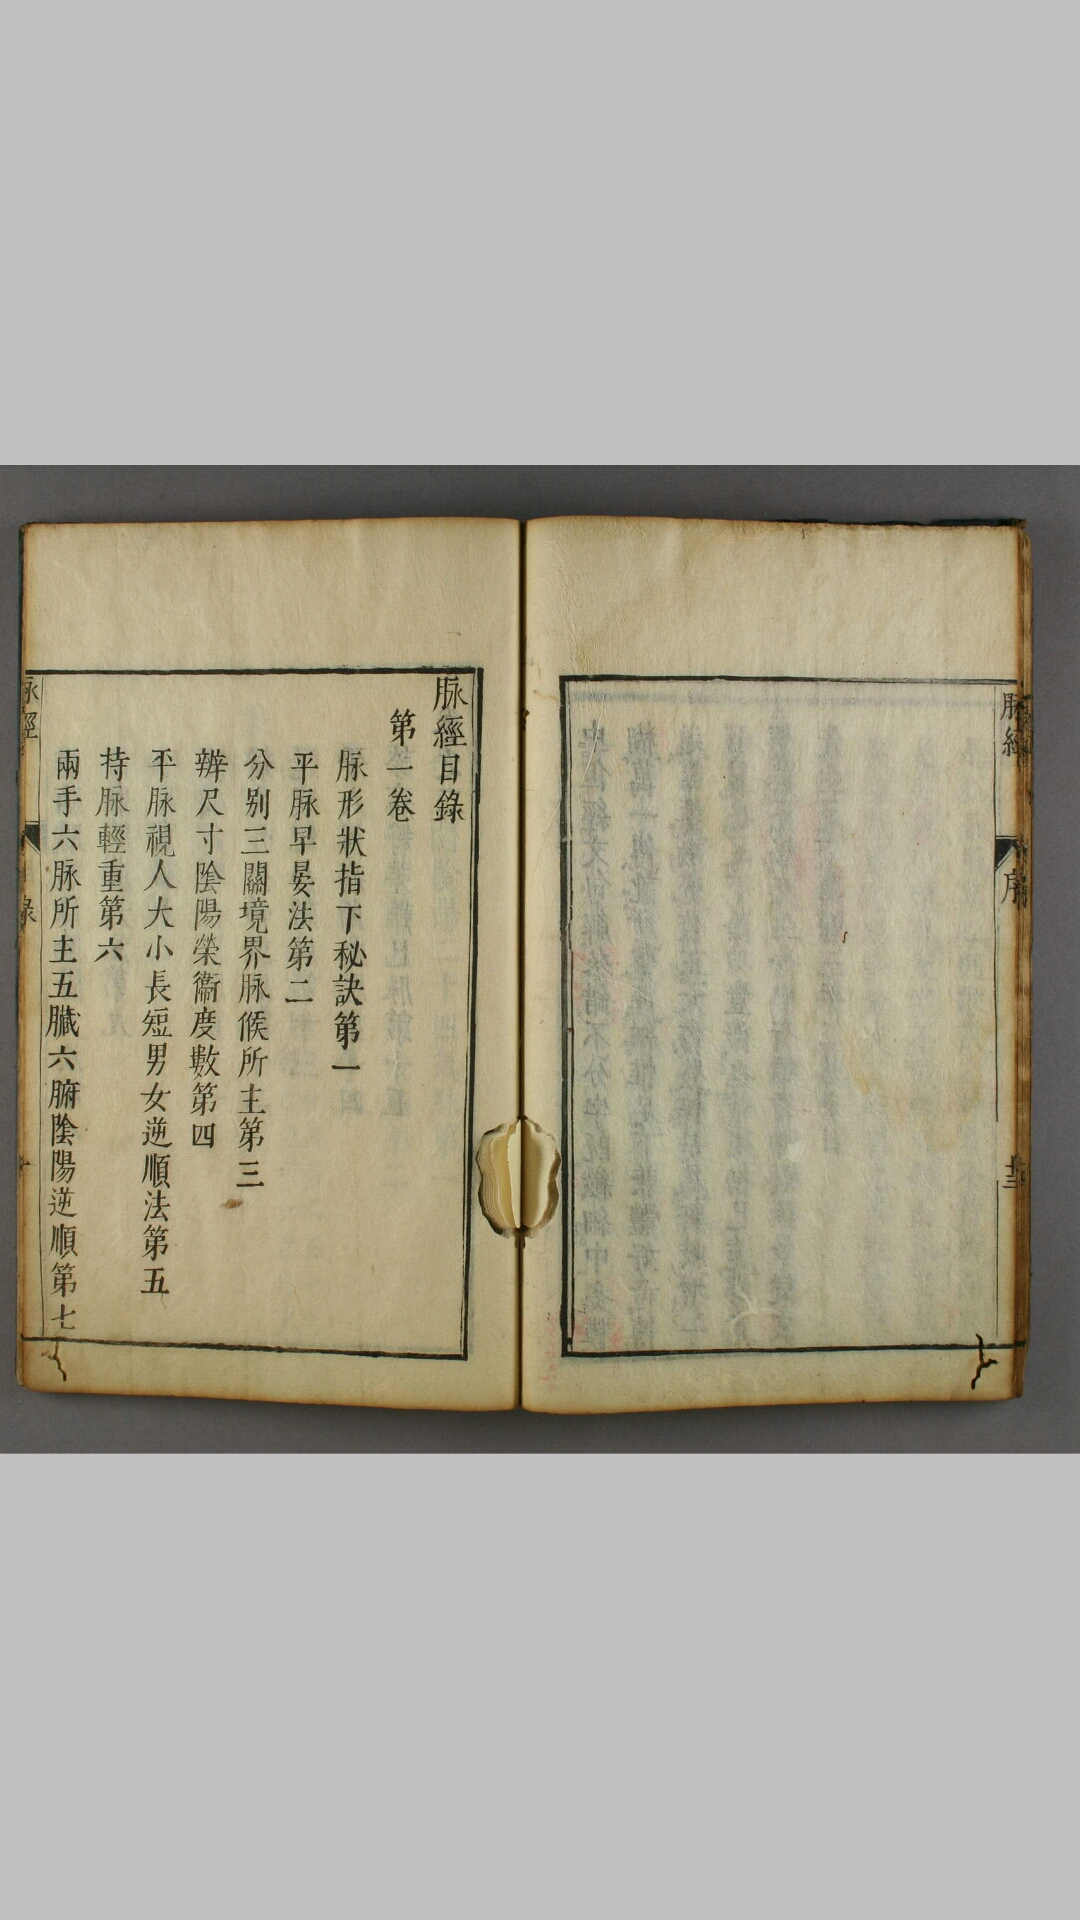 脉經
序
脉經目錄
第一卷
脉形狀指下秘訣第一
平脉早晏法第二
分别三關境界脉候所主第三
辨尺寸陰陽榮衞度數第四
平脉視人大小長短男女逆順法第五
持脉輕重第六
兩手六脉所主五臟六腑陰陽逆順第七
脉經